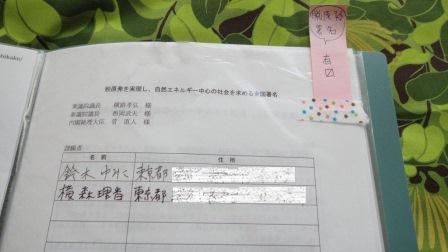 脱原発
署名
有
脱原発を実現し、自然エネルギー中心の社会を求める全国署名
衆議院議長 横路孝弘 様
参議院議長 西岡武夫 様
内閣総理大臣 菅 直人 様
請願者
名前 住所
鈴木 東京都
横森理香 東京都